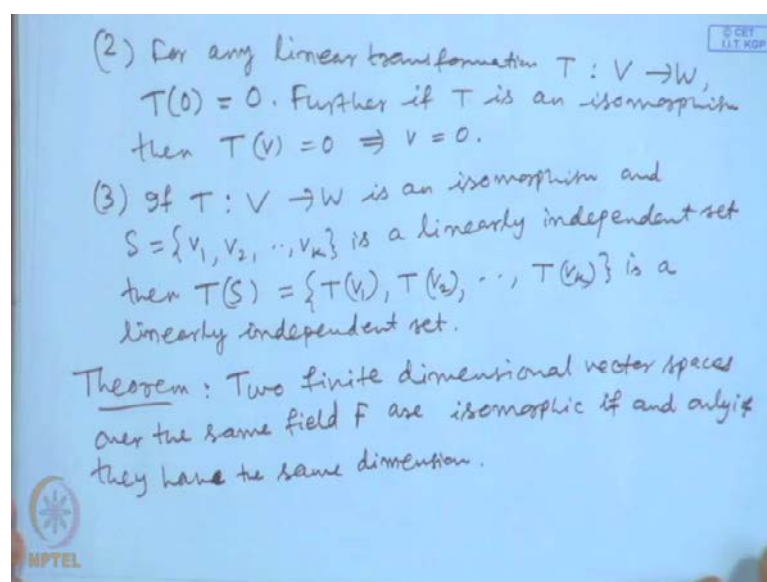 (2) For any linear transformation T : V → W,
T(0) = 0. Further if T is an isomorphism
then T(v) = 0 ⇒ v = 0.
(3) If T : V → W is an isomorphism and
S = {v₁, v₂, .., vₖ} is a linearly independent set
then T(S) = {T(v₁), T(v₂), .., T(vₖ)} is a
linearly independent set.
Theorem : Two finite dimensional vector spaces
over the same field F are isomorphic if and only if
they have the same dimension.
© CET
I.I.T. KGP
NPTEL